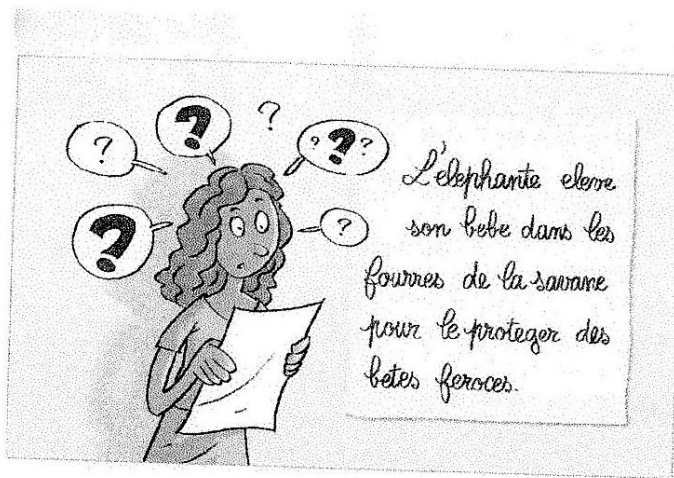 ?
?
?
? ? ?
?
?
L'elephante eleve
son bebe dans les
fourres de la savane
pour le proteger des
betes feroces.